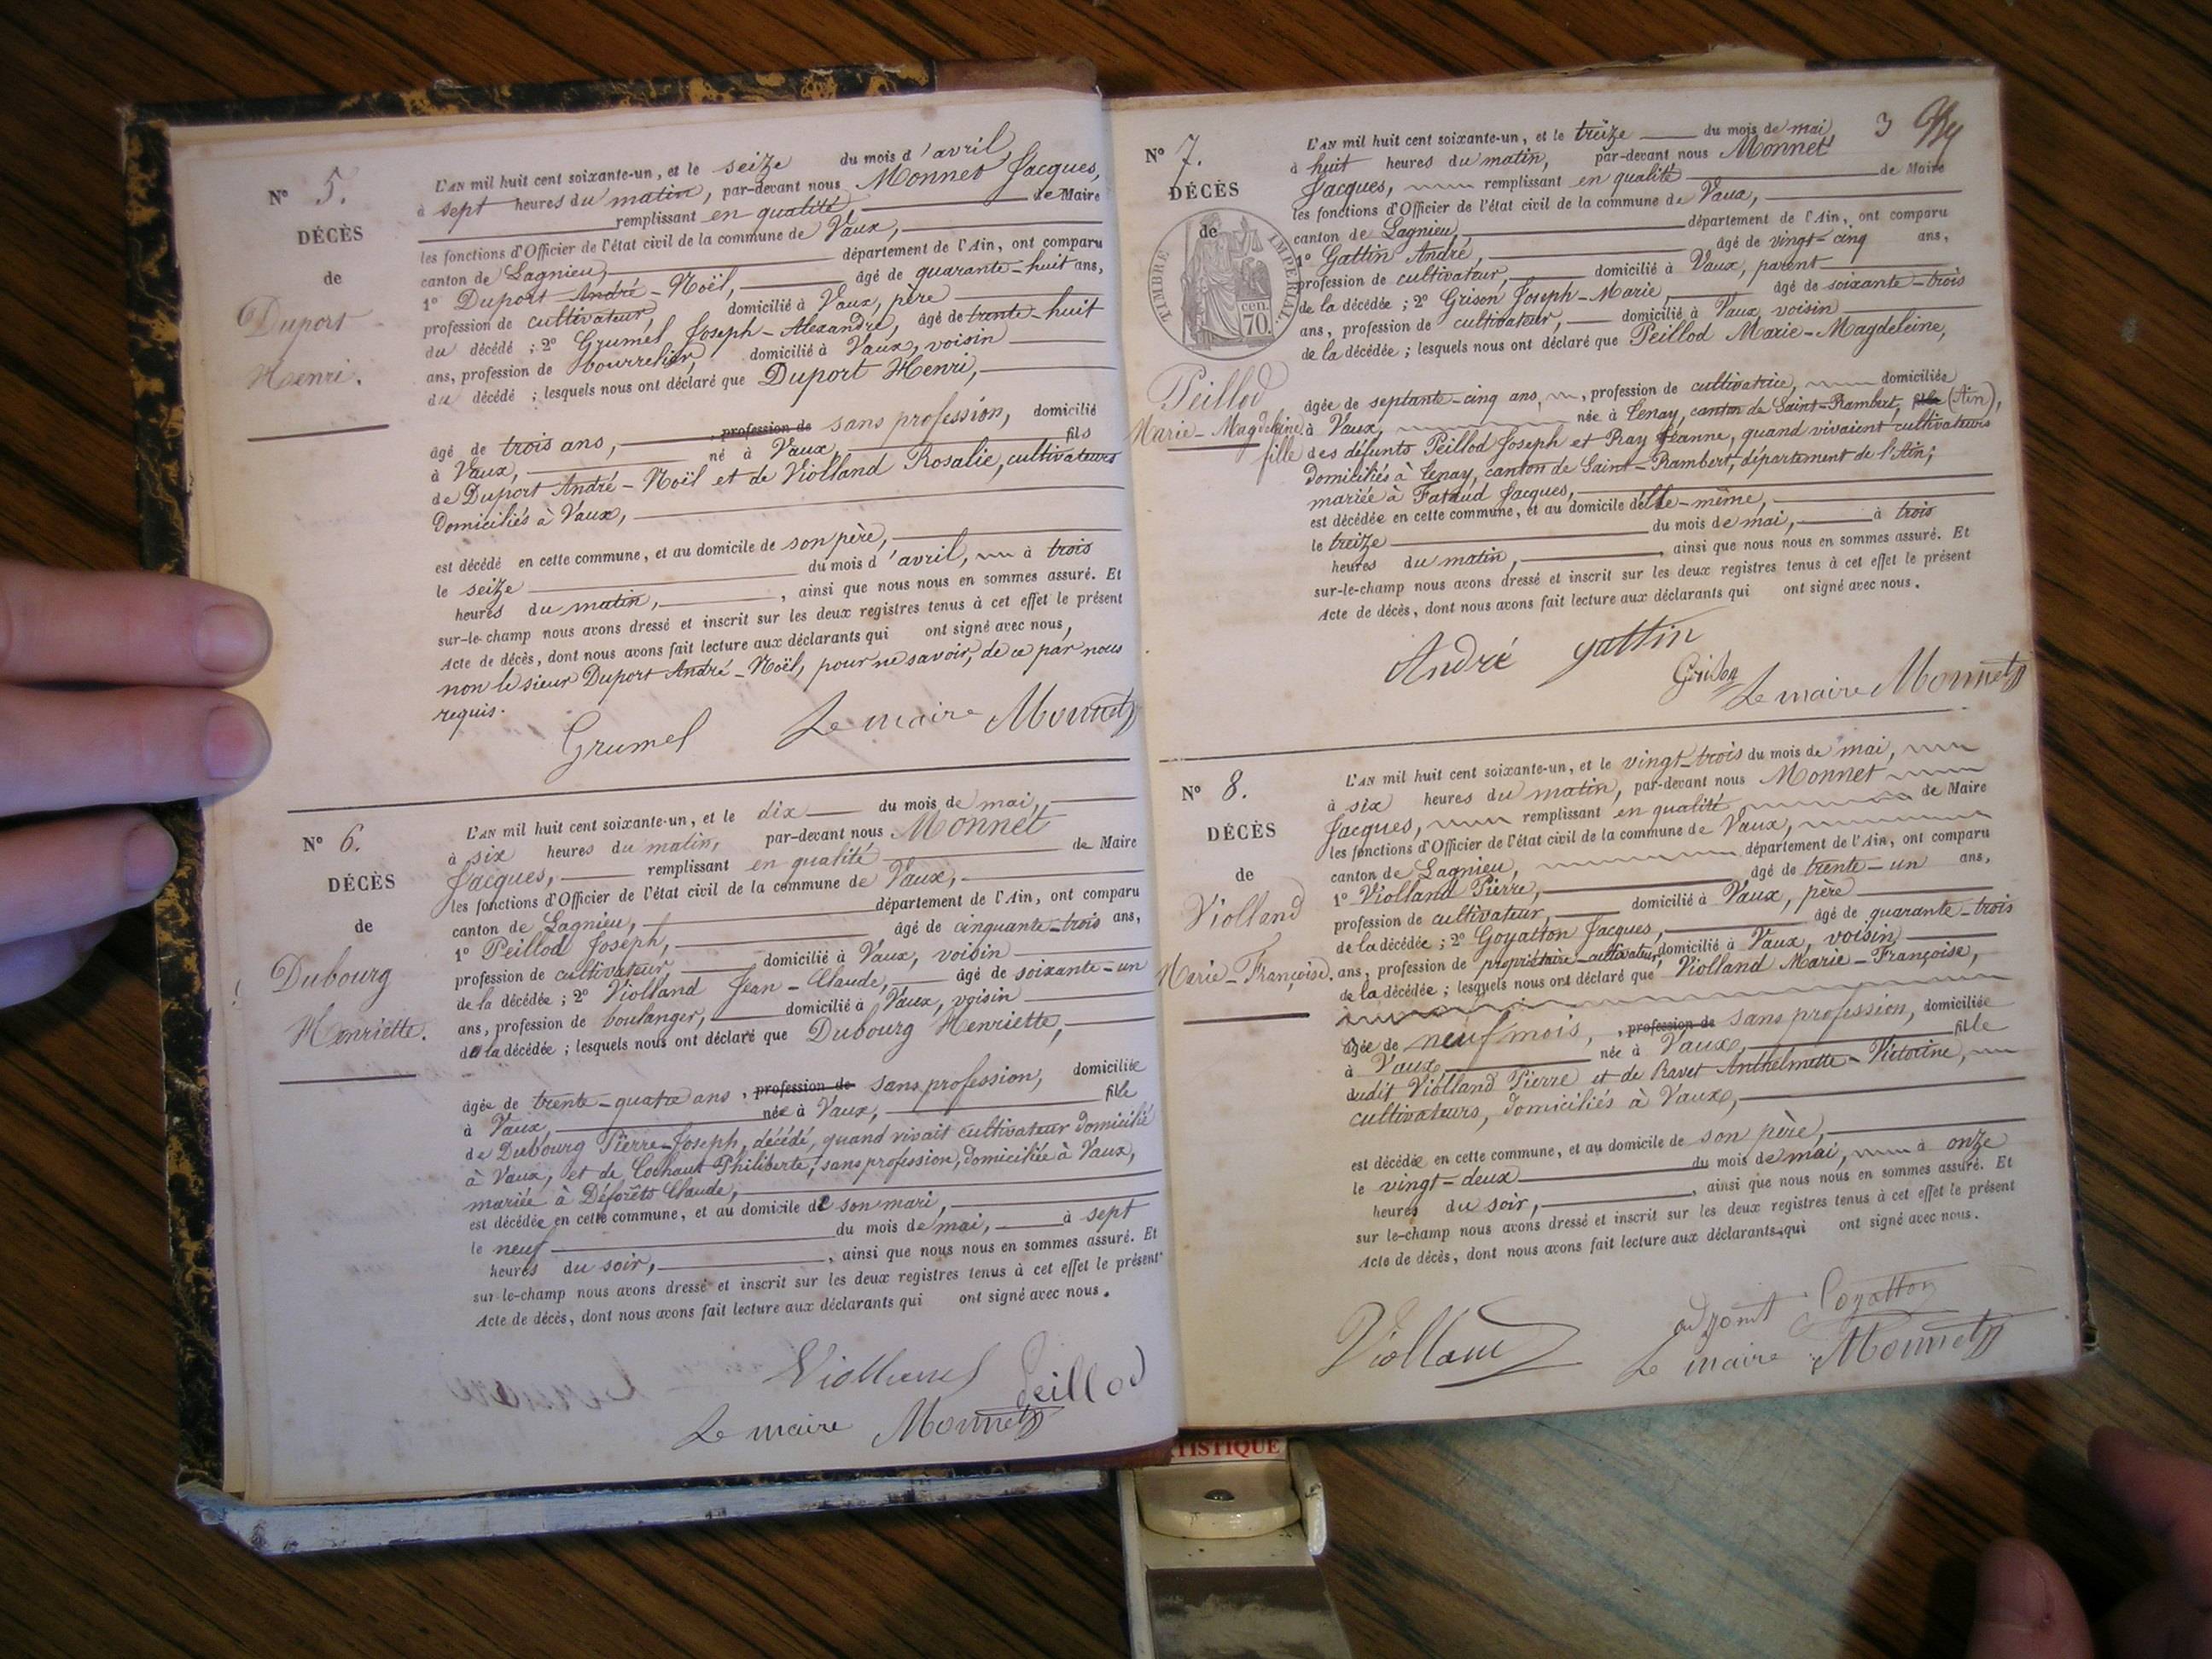 N° 5.
DÉCÈS
de
Duport
Henri.
L'AN mil huit cent soixante-un, et le seize du mois d'avril
à sept heures du matin, par-devant nous Monnet Jacques,
remplissant en qualité de Maire
les fonctions d'Officier de l'état civil de la commune de Vaux,
canton de Lagnieu, département de l'Ain, ont comparu
1° Duport André-Noël, âgé de quarante-huit ans,
profession de cultivateur, domicilié à Vaux, père
du décédé ; 2° Grumel Joseph-Alexandre, âgé de trente-huit
ans, profession de bourrelier, domicilié à Vaux, voisin
du décédé ; lesquels nous ont déclaré que Duport Henri,
âgé de trois ans, profession de sans profession, domicilié
à Vaux, né à Vaux, fils
de Duport André-Noël et de Violland Rosalie, cultivateurs
domiciliés à Vaux,
est décédé en cette commune, et au domicile de son père,
le seize du mois d'avril, à trois
heures du matin, , ainsi que nous nous en sommes assuré. Et
sur-le-champ nous avons dressé et inscrit sur les deux registres tenus à cet effet le présent
Acte de décès, dont nous avons fait lecture aux déclarants qui ont signé avec nous,
non le sieur Duport André-Noël, pour ne savoir, de ce par nous
requis.
Grumel Le maire Monnet
N° 6.
DÉCÈS
de
Dubourg
Henriette.
L'AN mil huit cent soixante-un, et le dix du mois de mai,
à six heures du matin, par-devant nous Monnet
Jacques, remplissant en qualité de Maire
les fonctions d'Officier de l'état civil de la commune de Vaux,
canton de Lagnieu, département de l'Ain, ont comparu
1° Peillod Joseph, âgé de cinquante-trois ans,
profession de cultivateur, domicilié à Vaux, voisin
de la décédée ; 2° Violland Jean-Claude, âgé de soixante-un
ans, profession de boulanger, domicilié à Vaux, voisin
de la décédée ; lesquels nous ont déclaré que Dubourg Henriette,
âgée de trente-quatre ans, profession de sans profession, domiciliée
à Vaux, née à Vaux, fille
de Dubourg Pierre-Joseph, décédé, quand vivait cultivateur domicilié
à Vaux, et de Cochaut Philiberte, sans profession, domiciliée à Vaux,
mariée à Déforêts Claude,
est décédée en cette commune, et au domicile de son mari,
le neuf du mois de mai, à sept
heures du soir, , ainsi que nous nous en sommes assuré. Et
sur-le-champ nous avons dressé et inscrit sur les deux registres tenus à cet effet le présent
Acte de décès, dont nous avons fait lecture aux déclarants qui ont signé avec nous.
Violland Peillod
Le maire Monnet
3
N° 7.
DÉCÈS
de
TIMBRE IMPERIAL
70 cen.
Peillod
Marie-Magdeleine
L'AN mil huit cent soixante-un, et le treize du mois de mai,
à huit heures du matin, par-devant nous Monnet
Jacques, remplissant en qualité de Maire
les fonctions d'Officier de l'état civil de la commune de Vaux,
canton de Lagnieu, département de l'Ain, ont comparu
1° Gattin André, âgé de vingt-cinq ans,
profession de cultivateur, domicilié à Vaux, parent
de la décédée ; 2° Grison Joseph-Marie, âgé de soixante-trois
ans, profession de cultivateur, domicilié à Vaux, voisin
de la décédée ; lesquels nous ont déclaré que Peillod Marie-Magdeleine,
âgée de septante-cinq ans, profession de cultivatrice, domiciliée
à Vaux, née à Tenay, canton de Saint-Rambert, (Ain),
fille des défunts Peillod Joseph et Ray Jeanne, quand vivaient cultivateurs
domiciliés à Tenay, canton de Saint-Rambert, département de l'Ain;
mariée à Fataud Jacques,
est décédée en cette commune, et au domicile d'elle-même,
le treize du mois de mai, à trois
heures du matin, , ainsi que nous nous en sommes assuré. Et
sur-le-champ nous avons dressé et inscrit sur les deux registres tenus à cet effet le présent
Acte de décès, dont nous avons fait lecture aux déclarants qui ont signé avec nous.
André gattin
Grison Le maire Monnet
N° 8.
DÉCÈS
de
Violland
Marie-Françoise.
L'AN mil huit cent soixante-un, et le vingt-trois du mois de mai,
à six heures du matin, par-devant nous Monnet
Jacques, remplissant en qualité de Maire
les fonctions d'Officier de l'état civil de la commune de Vaux,
canton de Lagnieu, département de l'Ain, ont comparu
1° Violland Pierre, âgé de trente-un ans,
profession de cultivateur, domicilié à Vaux, père
de la décédée ; 2° Goyatton Jacques, âgé de quarante-trois
ans, profession de propriétaire-cultivateur, domicilié à Vaux, voisin
de la décédée ; lesquels nous ont déclaré que Violland Marie-Françoise,
âgée de neuf mois, , profession de sans profession, domiciliée
à Vaux, née à Vaux, fille
dudit Violland Pierre et de Ravet Anthelmette-Victorine,
cultivateurs, domiciliés à Vaux,
est décédée en cette commune, et au domicile de son père,
le vingt-deux du mois de mai, à onze
heures du soir, , ainsi que nous nous en sommes assuré. Et
sur le-champ nous avons dressé et inscrit sur les deux registres tenus à cet effet le présent
Acte de décès, dont nous avons fait lecture aux déclarants, qui ont signé avec nous.
Violland adjoint Goyatton
Le maire Monnet
TISTIQUE